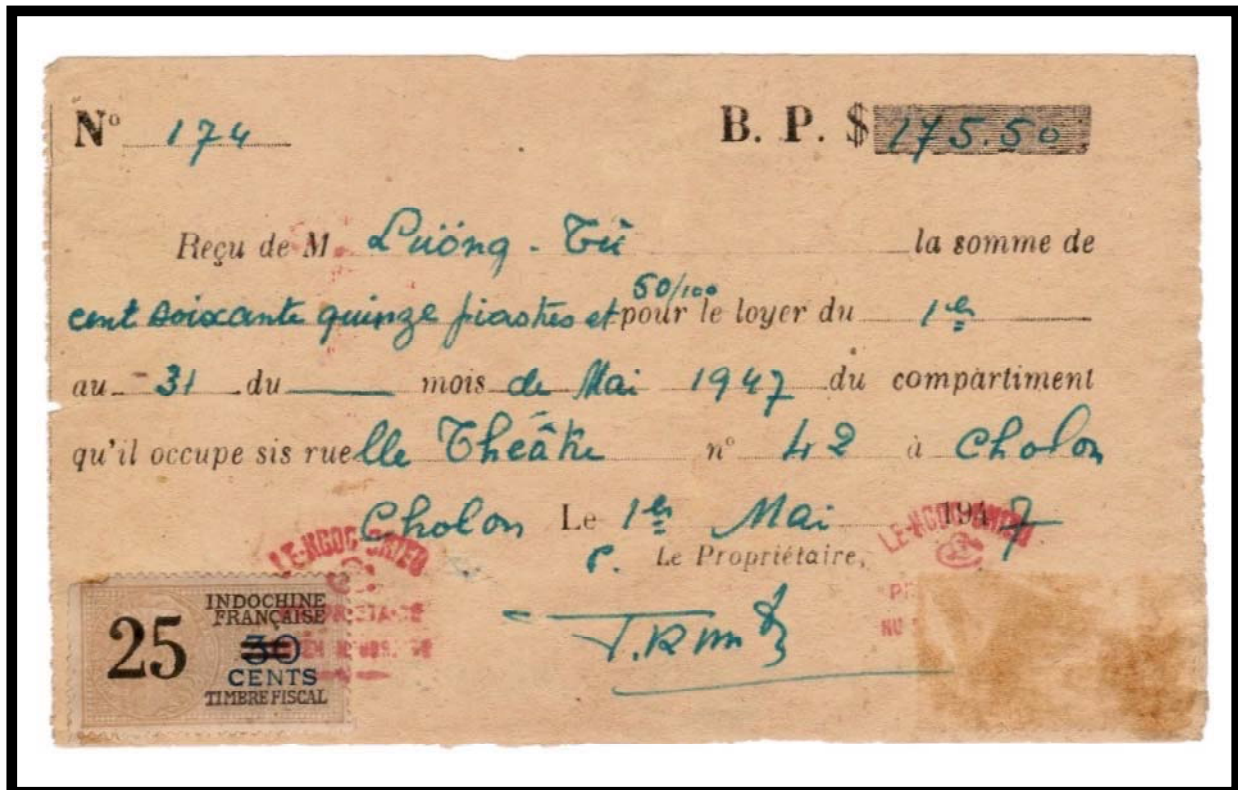 N° 174 B. P. $ 175.50
Reçu de M. Lüöng - Tü la somme de
cent soixante quinze piastres et 50/100 pour le loyer du 1er
au 31 du mois de Mai 1947 du compartiment
qu'il occupe sis ruelle Théâtre n° 42 à Cholon
Cholon Le 1er Mai 1947
P. Le Propriétaire,
LE-NGOC
LE-NGOC
25 INDOCHINE
FRANÇAISE
30
CENTS
TIMBRE FISCAL